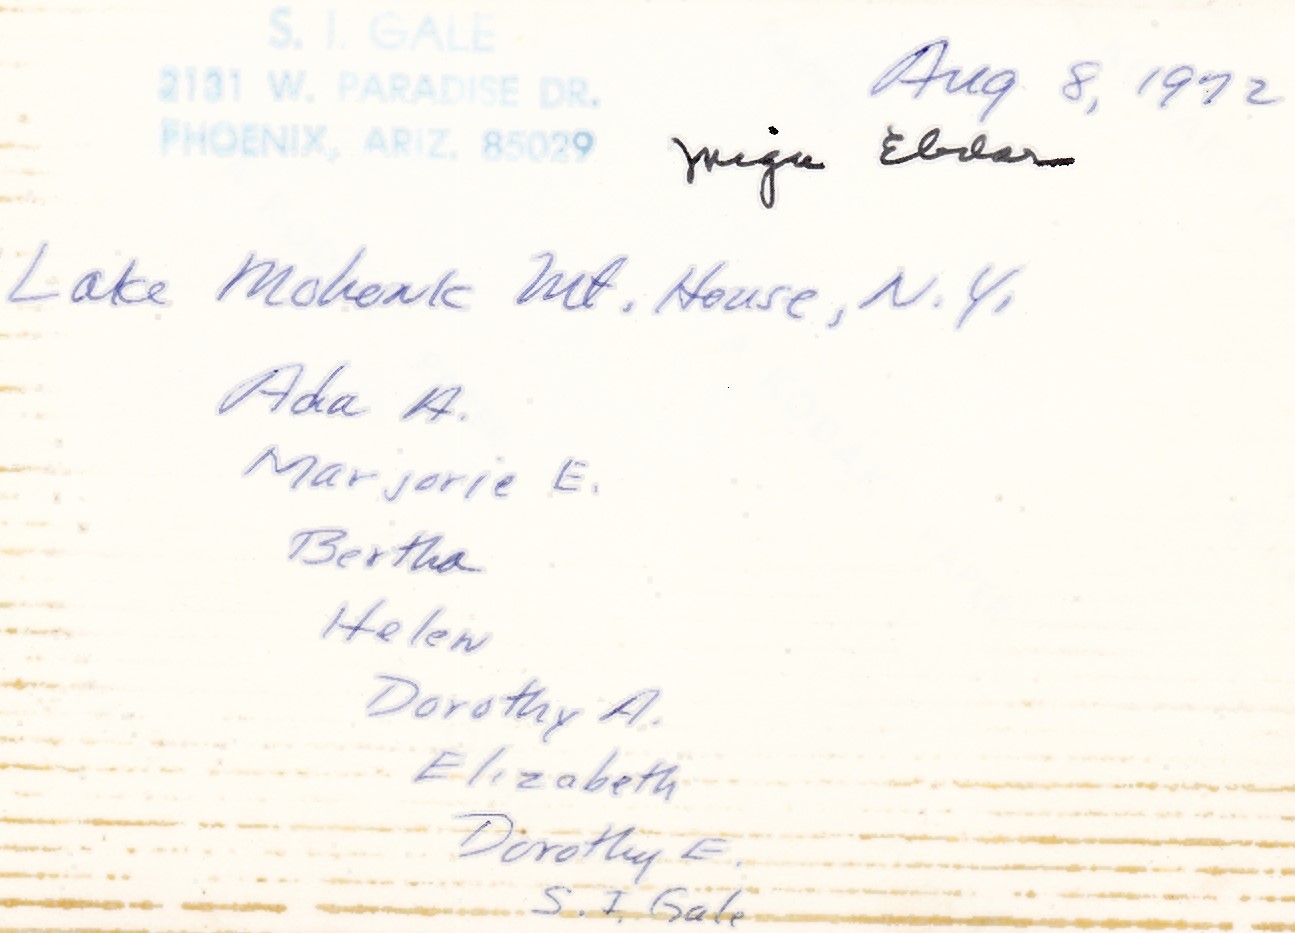 S. I. GALE
2131 W. PARADISE DR.
PHOENIX, ARIZ. 85029
Aug 8, 1972
Lake Mohonk Mt. House, N.Y.
Ada A.
Marjorie E.
Bertha
Helen
Dorothy A.
Elizabeth
Dorothy E.
S. I. Gale